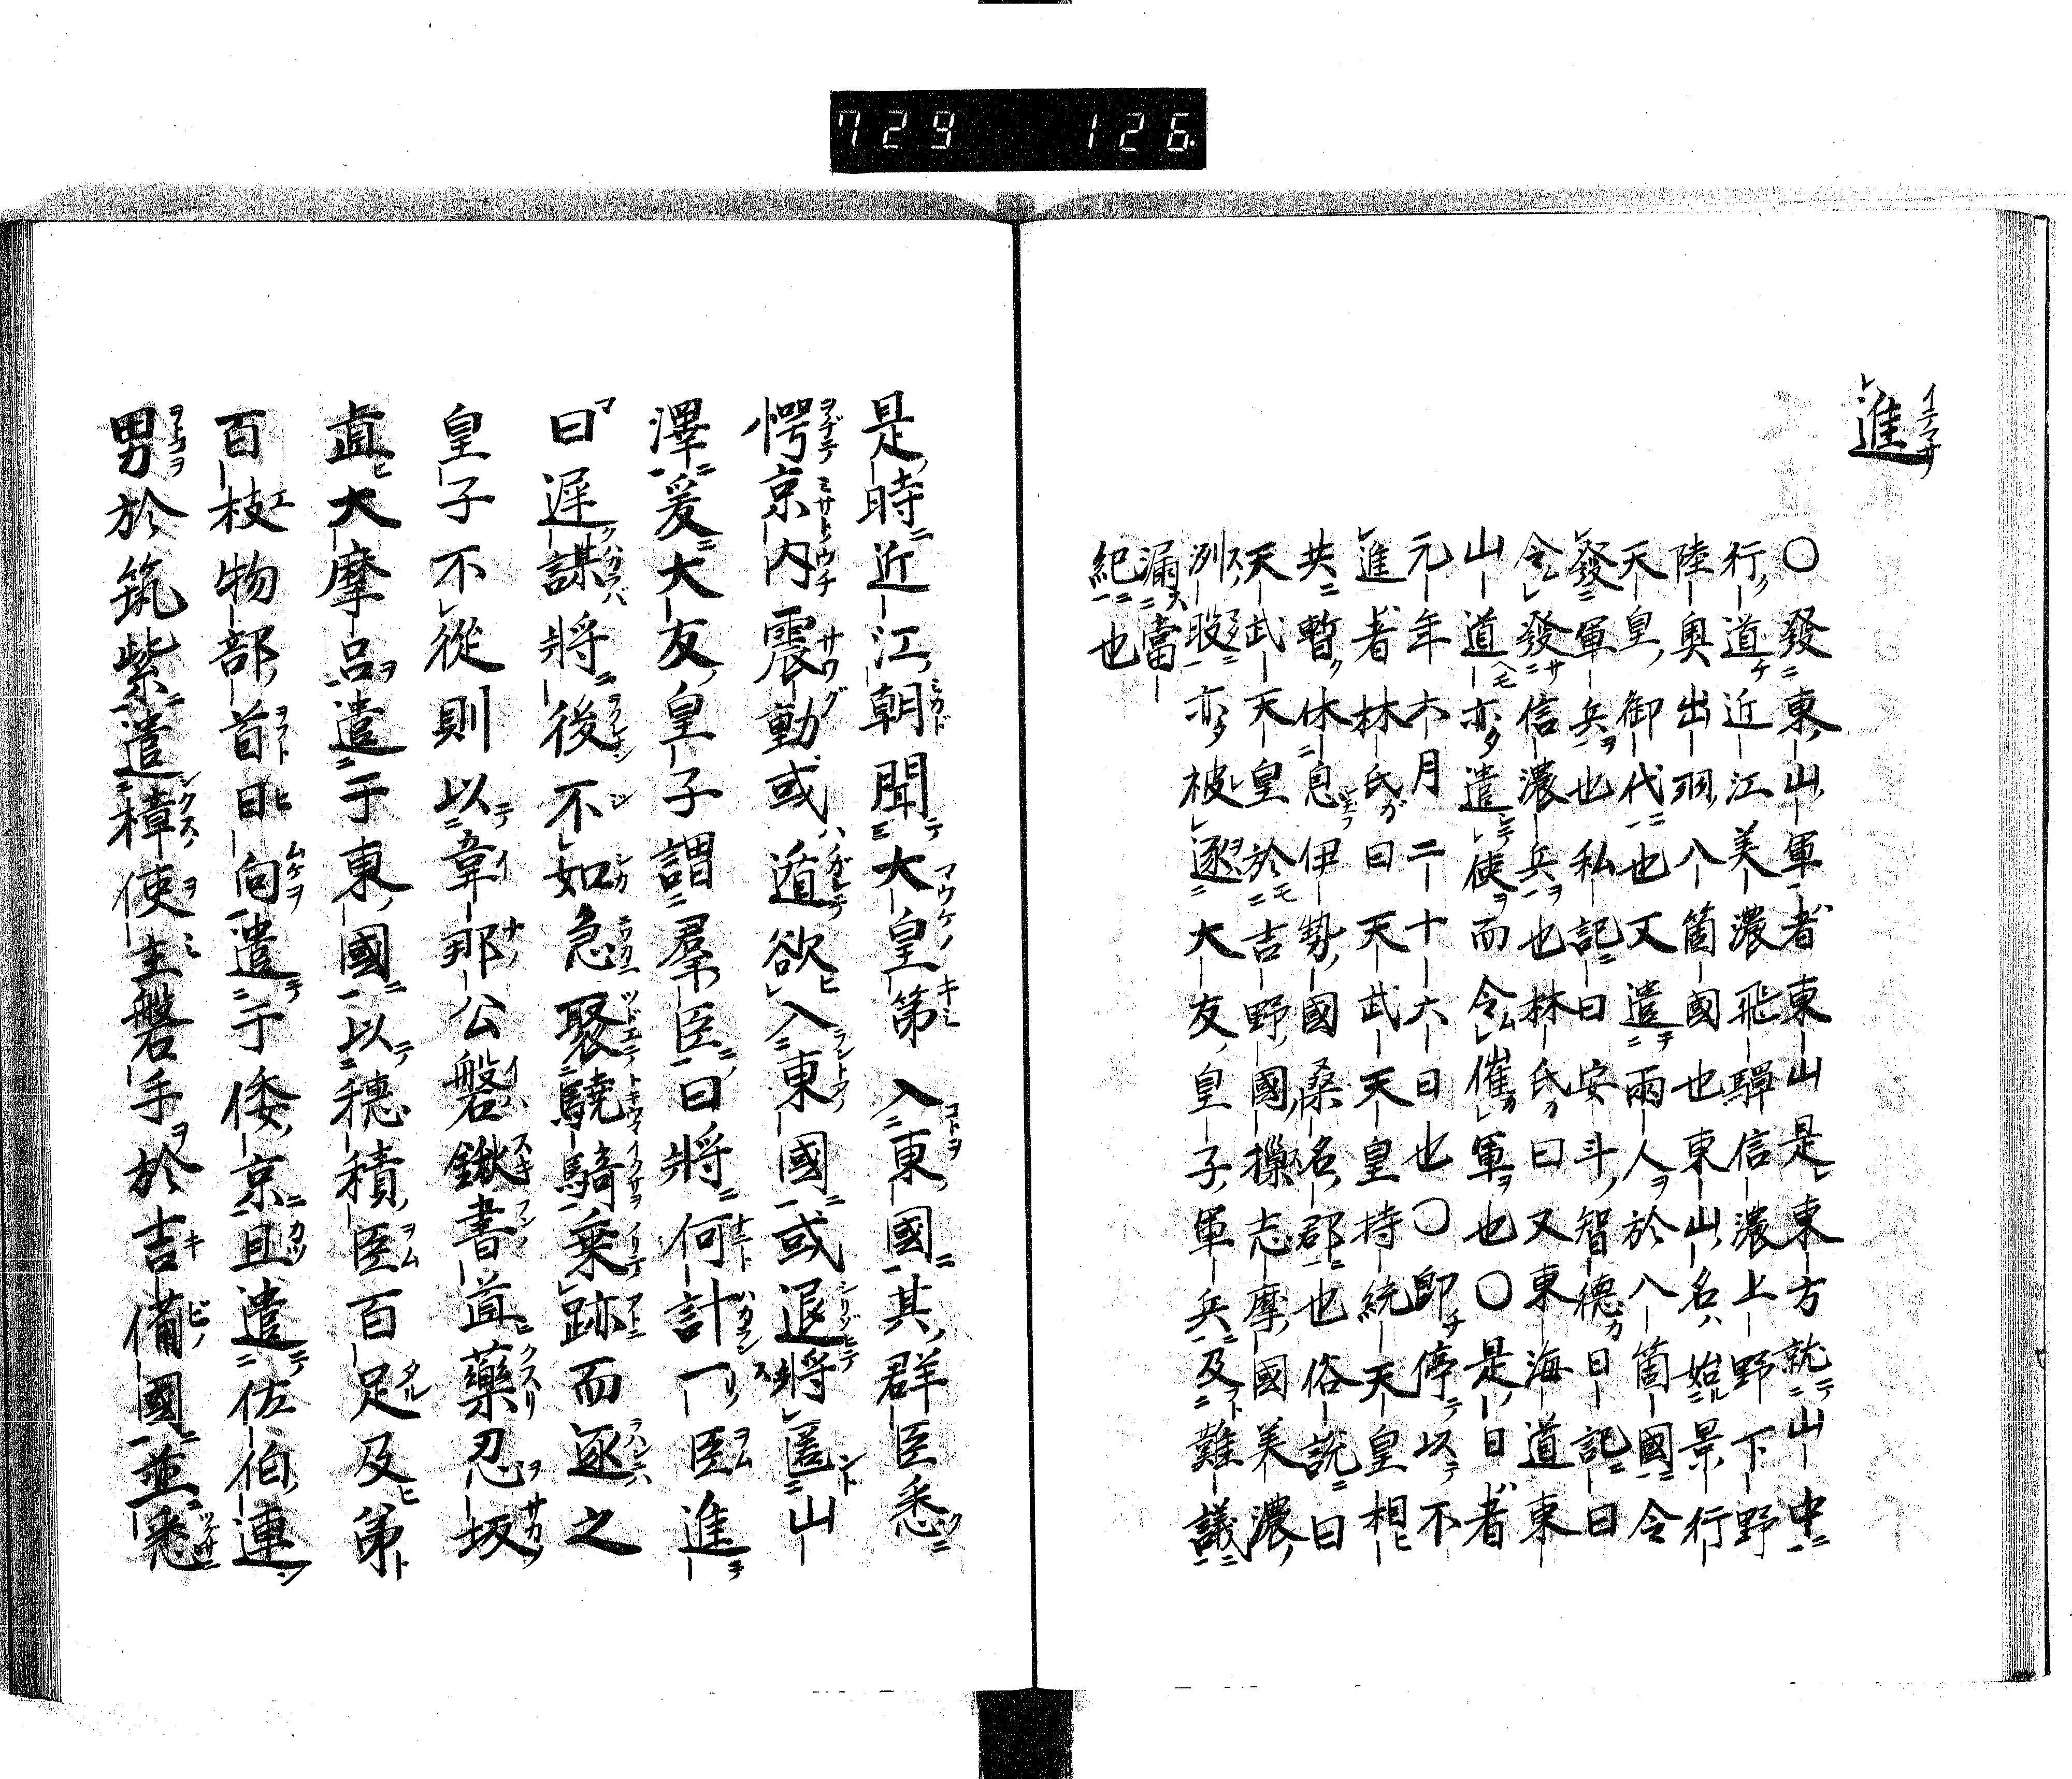 729 126
進
〇發東山軍者東山是東方就山中
行道近江美濃飛驒信濃上野下野
陸奧出羽八箇國也東山名始景行
天皇御代也又遣兩人於八箇國令
發軍兵也私記曰安斗智德日記曰
令發信濃兵也林氏曰又東海道東
山道亦遣使而令催軍也〇是日者
元年六月二十六日也〇卽停以不
進者林氏曰天武天皇持統天皇相
共暫休息伊勢國桑名郡也俗說曰
天武天皇於吉野國操志摩國美濃
洌股亦被逐大友皇子軍兵及難議
漏當
紀也
是時近江朝聞大皇第入東國其群臣悉
愕京內震動或遁欲入東國或退將匿山
澤爰大友皇子謂羣臣曰將何計一臣進
曰遲謀將後不如急聚驍騎乗跡而逐之
皇子不從則以韋那公磐鍬書直藥忍坂
直大摩呂遣于東國以穗積臣百足及弟
百枝物部首日向遣于倭京且遣佐伯連
男於筑紫遣樟使主磐手於吉備國並悉